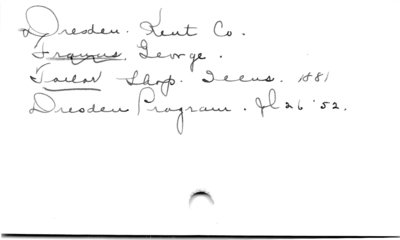 Dresden. Kent Co.
Francis, George.
Tailor Shop. Illus. 1881
Dresden Program. Jl 26 '52.